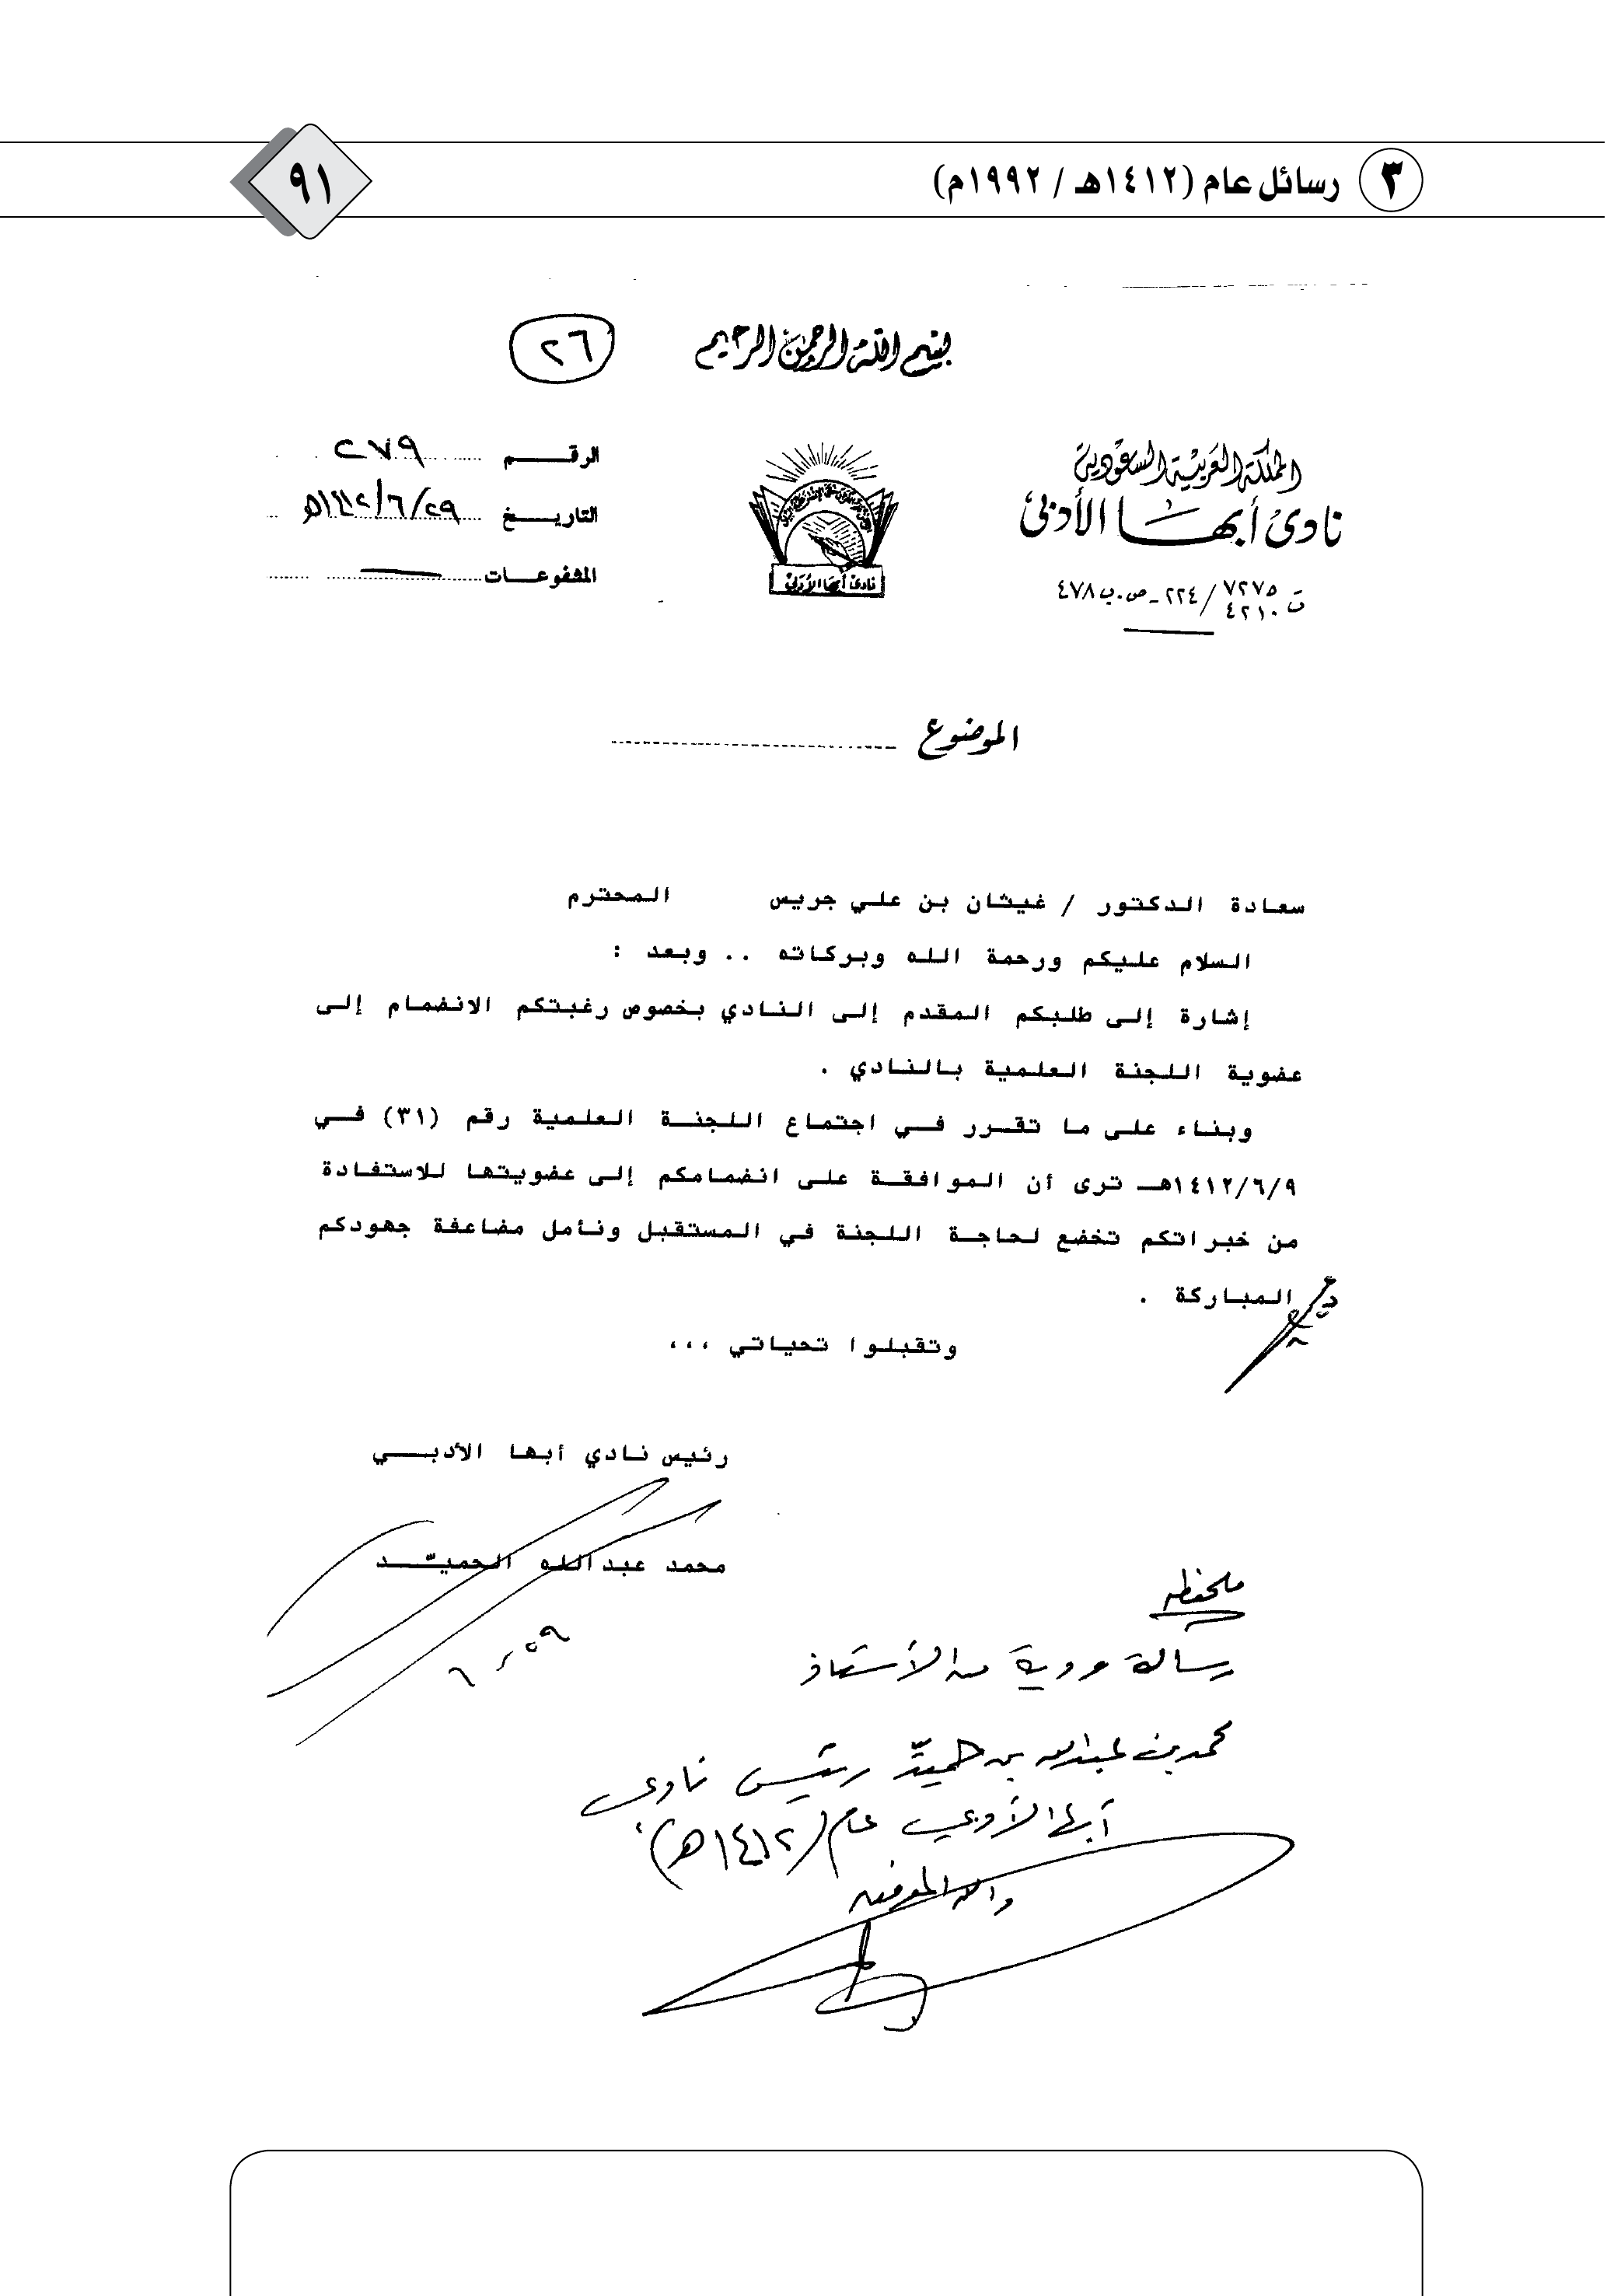 ٣ رسائل عام (١٤١٢هـ / ١٩٩٢م)
٩١
بسم الله الرحمن الرحيم
٢٦
المملكة العربية السعودية
نادى أبها الأدبى
ت ٧٢٧٥ / ٢٢٤ - ص.ب ٤٧٨
ت ٤٢١٠
نادى أبها الأدبى
الرقم ٢٧٩
التاريخ ٢٩/٦/١٤١٢هـ
المشفوعات
الموضوع
سعادة الدكتور / غيثان بن علي جريس المحترم
السلام عليكم ورحمة الله وبركاته .. وبعد :
إشارة إلى طلبكم المقدم إلى النادي بخصوص رغبتكم الانضمام إلى
عضوية اللجنة العلمية بالنادي .
وبناء على ما تقرر في اجتماع اللجنة العلمية رقم (٣١) في
١٤١٢/٦/٩هـ ترى أن الموافقة على انضمامكم إلى عضويتها للاستفادة
من خبراتكم تخضع لحاجة اللجنة في المستقبل ونأمل مضاعفة جهودكم
المباركة .
وتقبلوا تحياتي ،،،
رئيس نادي أبها الأدبي
محمد عبدالله الحميّد
ملحظه
رسالة من الأستاذ
محمد بن عبدالله بن حميّد رئيس نادي
أبها الأدبي عام (١٤١٢هـ)،
والله الموفق